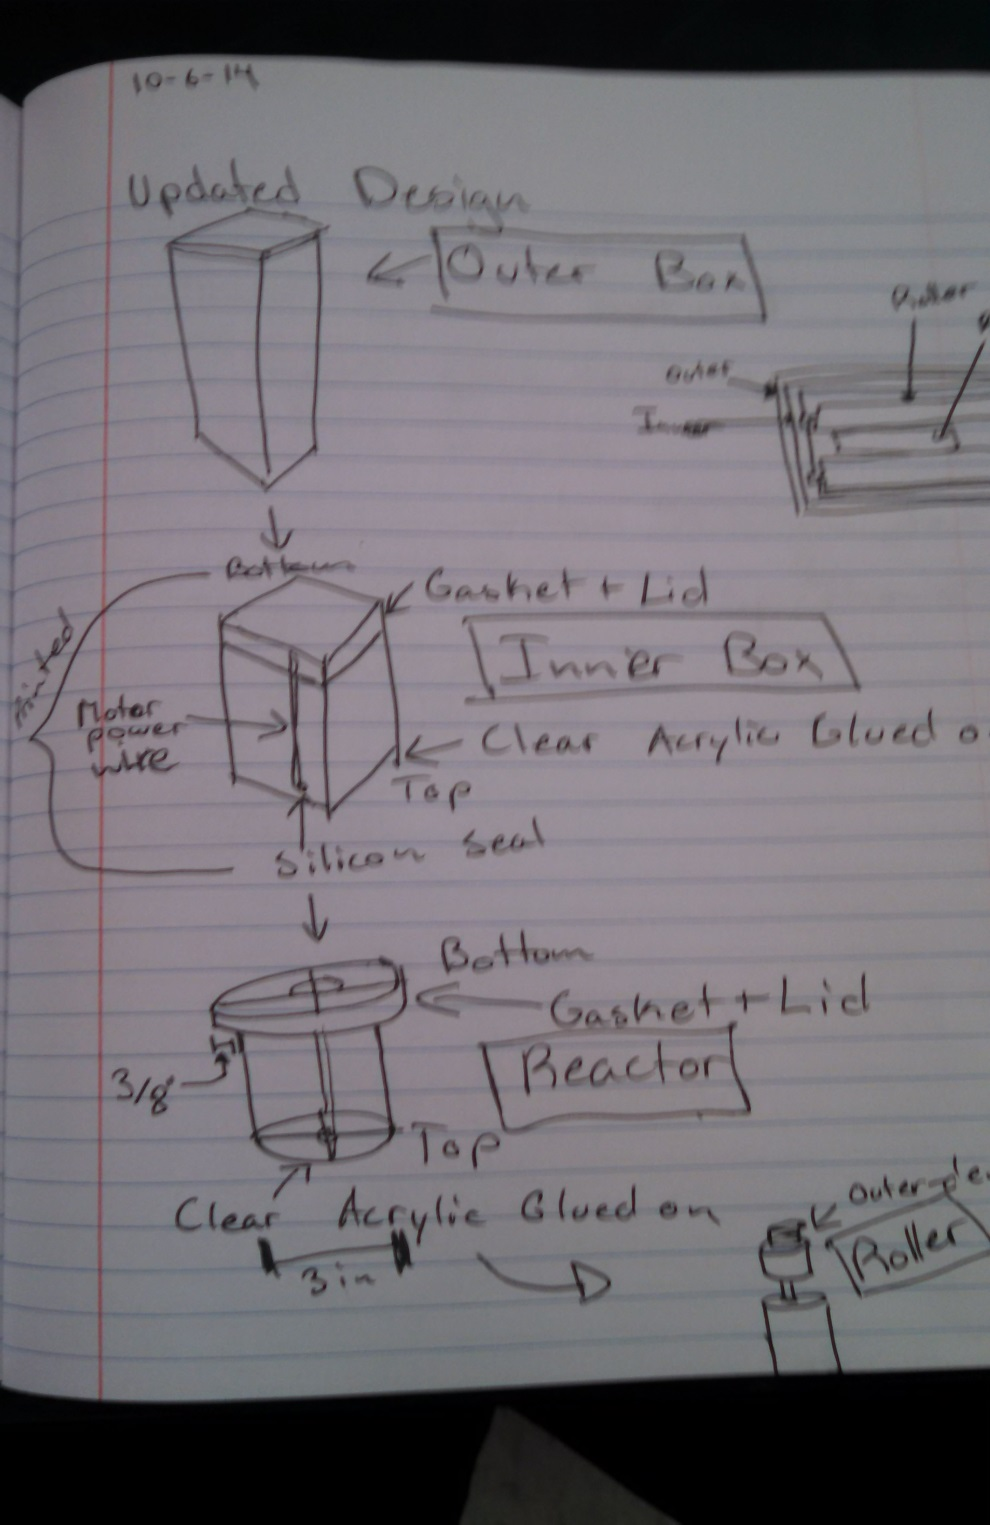 10-6-14
Updated Design
Outer Box
Roller
outer
Inner
Bottom
Gasket + Lid
Inner Box
Printed
Motor
power
wire
Clear Acrylic Glued o
Top
Silicon Seal
Bottom
Gasket + Lid
Reactor
3/8"
Top
Clear Acrylic Glued on
3 in
Outer
Roller